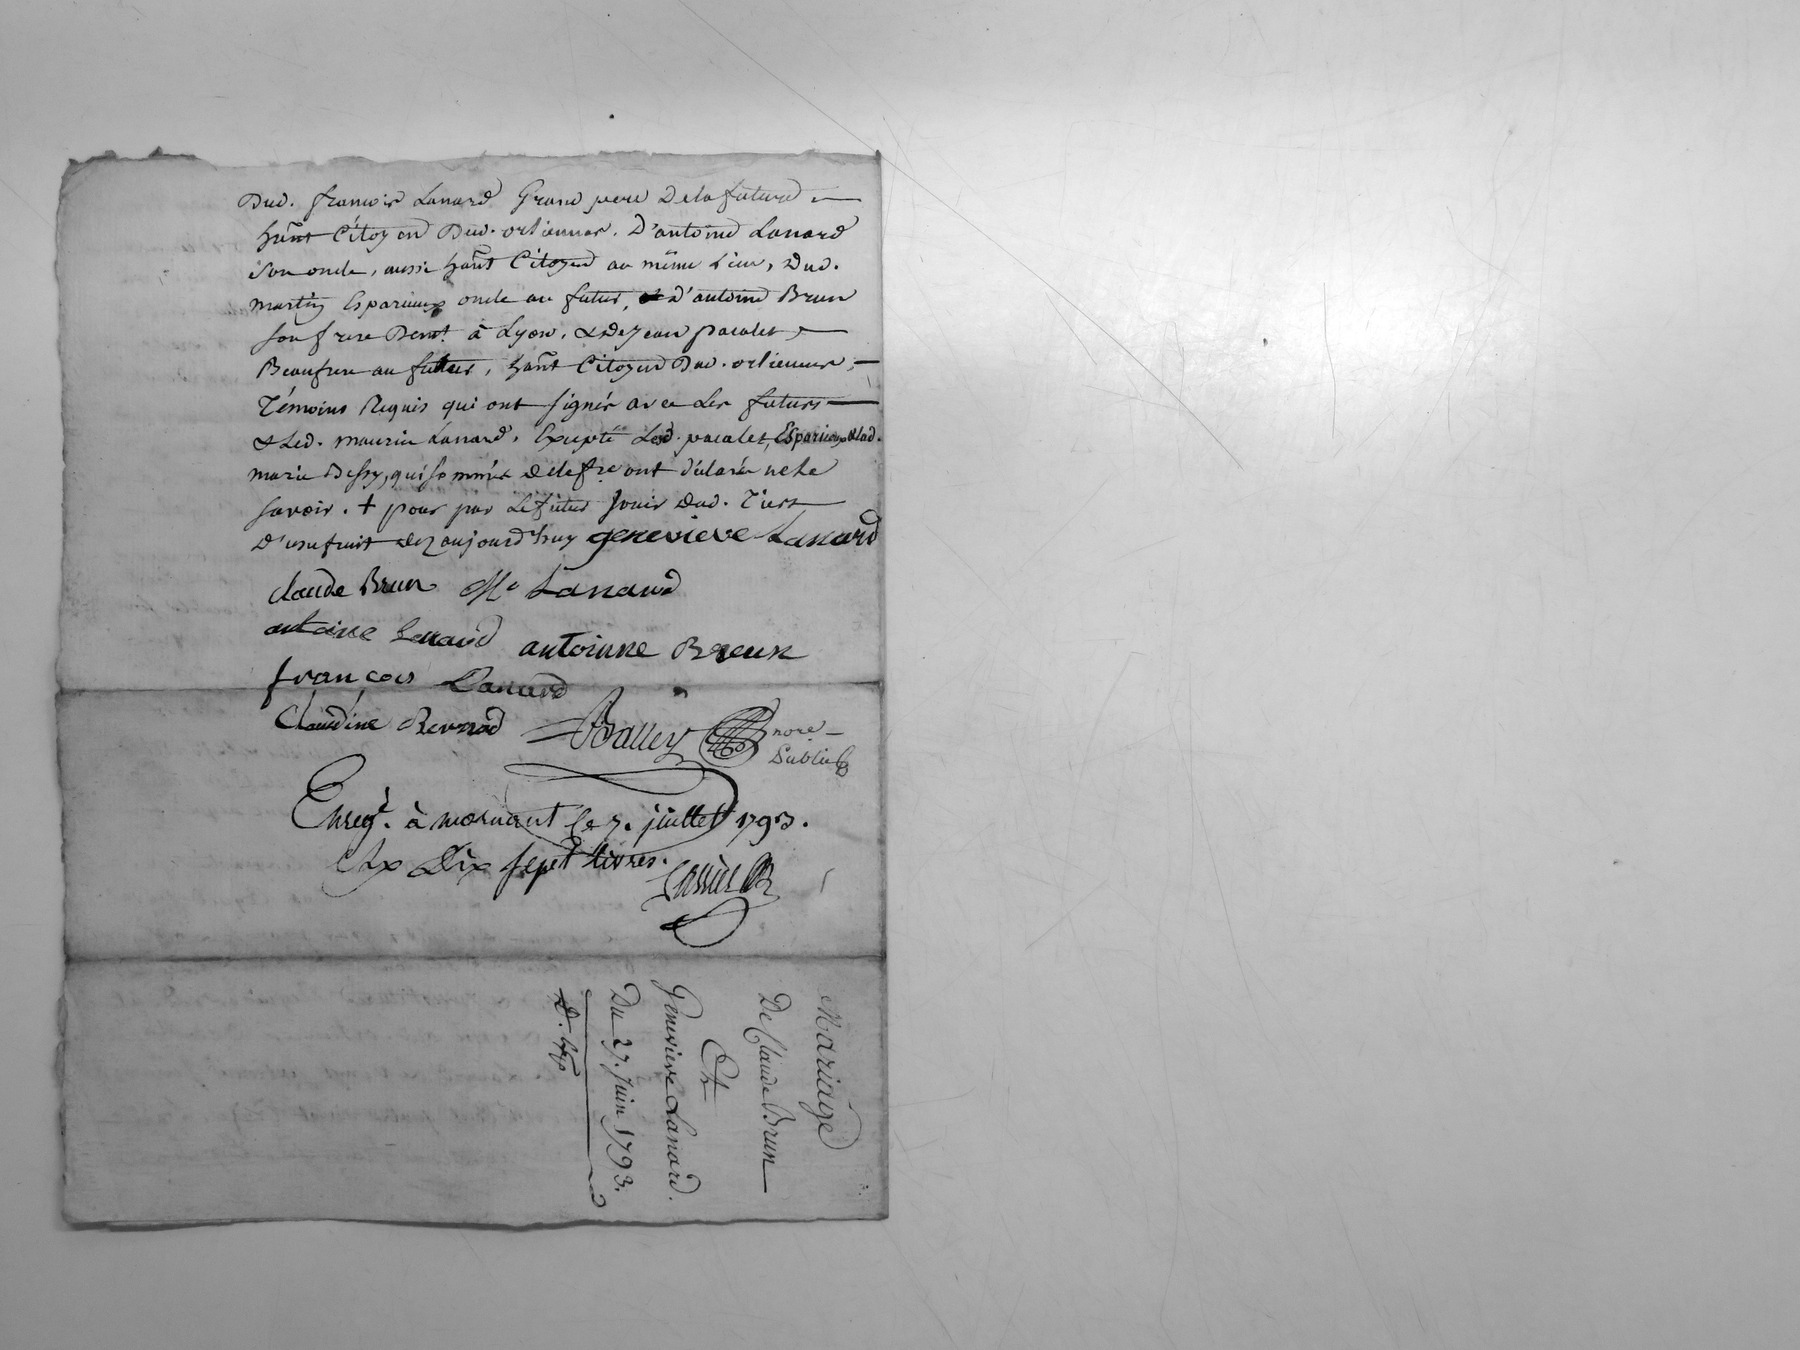 Dud. francois Lanard Grand pere De la future
hant Citoyen Dud. orlienas. D'antoine Lanard
Son oncle, aussi hant Citoyen au même Lieu, Dud.
martin Esparieux oncle au futur, D'antoine Brun
son frere Demt. à Lyon, & de jean pacalet
Beaufrere au futur, hant Citoyen Dud. orlienas,
Témoins Requis qui ont signés avec Les futurs
& Led. maurice Lanard, Excepté Led. pacalet, Esparieux & lad.
marie Dessy, qui sommés de le fre. ont déclarés ne le
savoir. + pour par Le futur Jouir Dud. Tiers
D'usufruit dez aujourd'huy genevieve Lanard
claude Brun Mce Lanard
antoine Lanard antoinne Breun
françois Lanard
Claudine Bernad Balley nore.
Public
Enregt. à mornant le 7. juillet 1793.
Rx Dix sept livres.
Mariage
De Claude Brun
Et
Genevieve Lanard.
Du 27. Juin 1793.